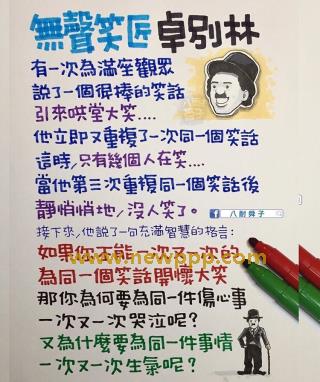 無聲笑匠卓別林
有一次為滿座觀眾
說了一個很棒的笑話
引來哄堂大笑....
他立即又重複了一次同一個笑話
這時,只有幾個人在笑....
當他第三次重複同一個笑話後
靜悄悄地,沒人笑了。
f 八耐舜子
接下來,他說了一句充滿智慧的格言:
如果你不能一次又一次的
www.newopp.com
為同一個笑話開懷大笑
那你為何要為同一件傷心事
一次又一次哭泣呢?
又為什麼要為同一件事情
一次又一次生氣呢?